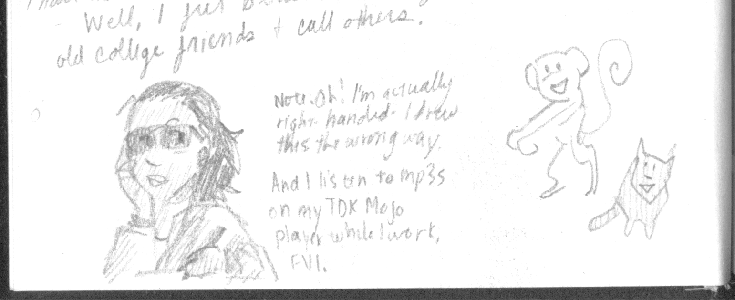 Well, I just
old college friends + call others.
Note: Oh! I'm actually
right-handed - I drew
this the wrong way.
And I listen to mp3s
on my TDK Mojo
player while I work,
FYI.